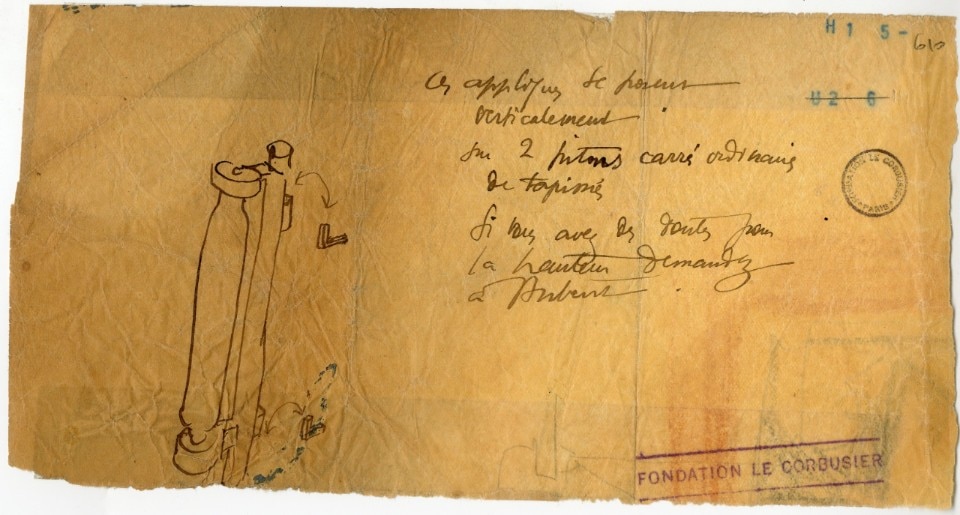 H1 5-610
U2 6
Ces appliques se posent
verticalement
sur 2 pitons carré ordinaire
de tapissier
Si vous avez des doutes pour
la hauteur demandez
à
FONDATION LE CORBUSIER
PARIS
FONDATION LE CORBUSIER